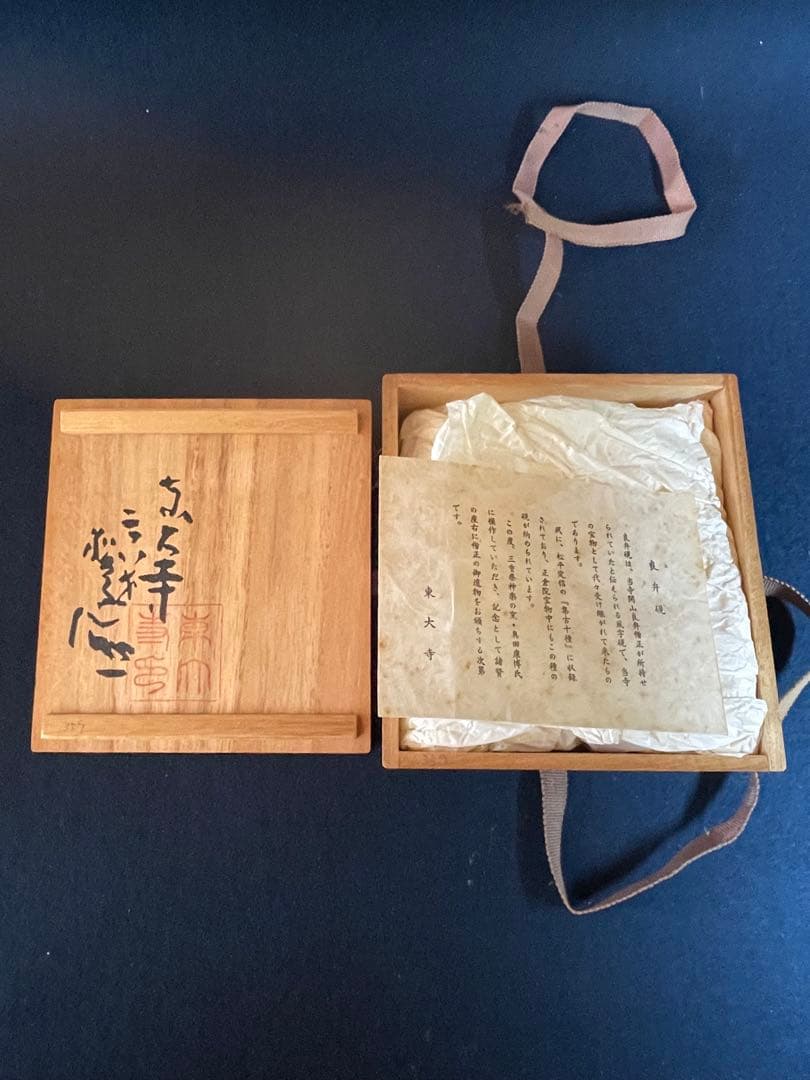 良弁硯
良弁硯は、当寺開山良弁僧正が所持せ
られていたと伝えられる風字硯で、当寺
の宝物として代々受け継がれて来たもの
であります。
夙に、松平定信の『集古十種』に収録
されており、正倉院宝物中にもこの種の
硯が納められています。
この度、三重県神楽の窯・奥田康博氏
に模作していただき、記念として諸賢
の座右に僧正の御遺物をお頒ちする次第
です。
東大寺
東大寺